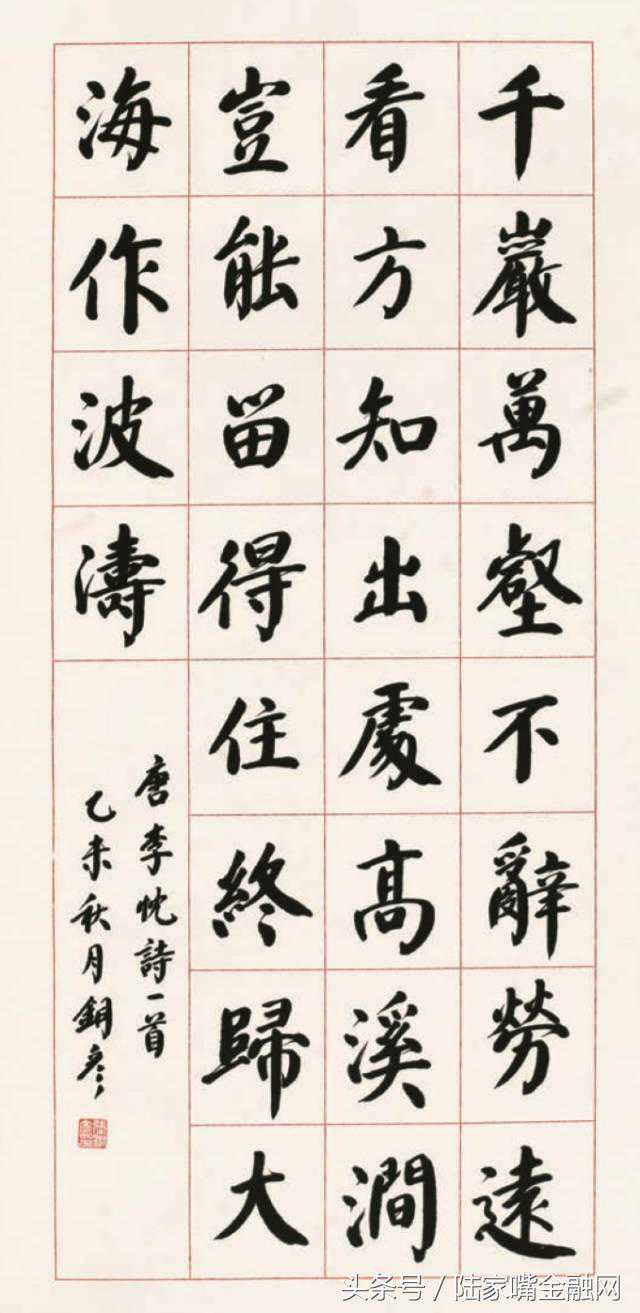 千巖萬壑不辭勞遠
看方知出處高溪澗
豈能留得住終歸大
海作波濤
唐李忱詩一首
乙未秋月銅彥
头条号 / 陆家嘴金融网